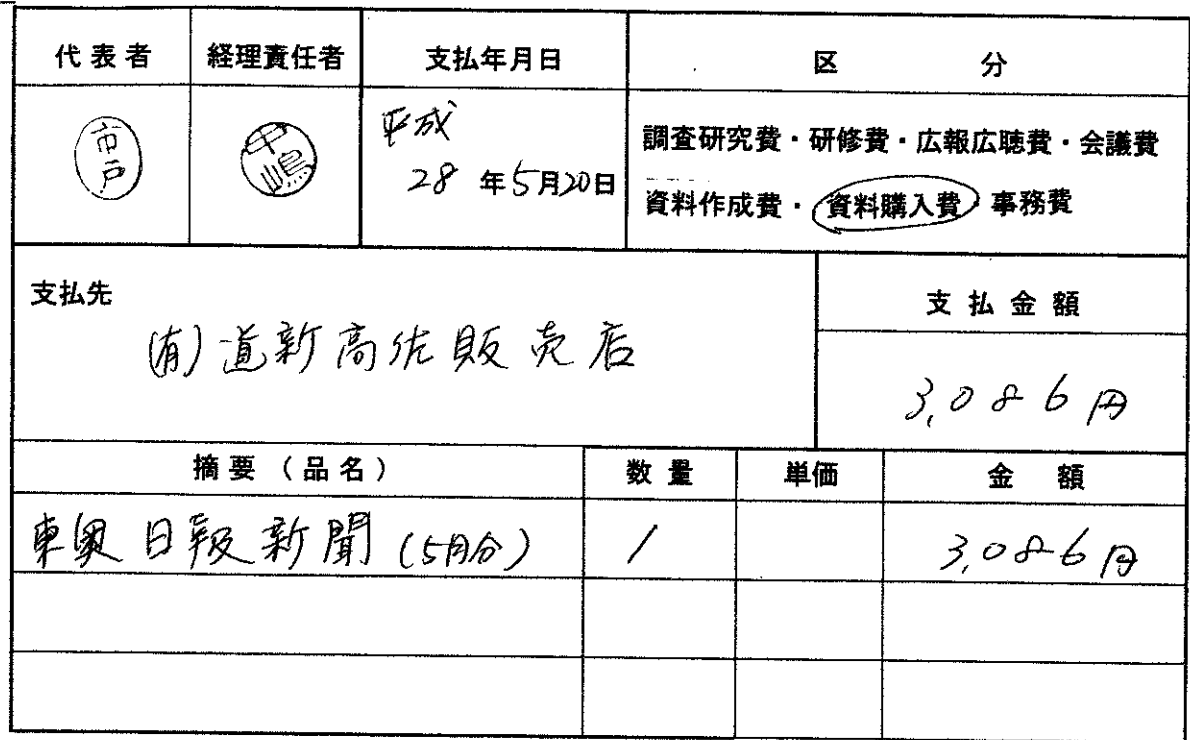 代表者 経理責任者 支払年月日 区分
市戸 中嶋 平成
28年5月20日
調査研究費・研修費・広報広聴費・会議費
資料作成費・資料購入費・事務費
支払先 支払金額
(有)道新高佐販売店
3,086円
摘要(品名) 数量 単価 金額
東奥日報新聞(5月分) 1 3,086円